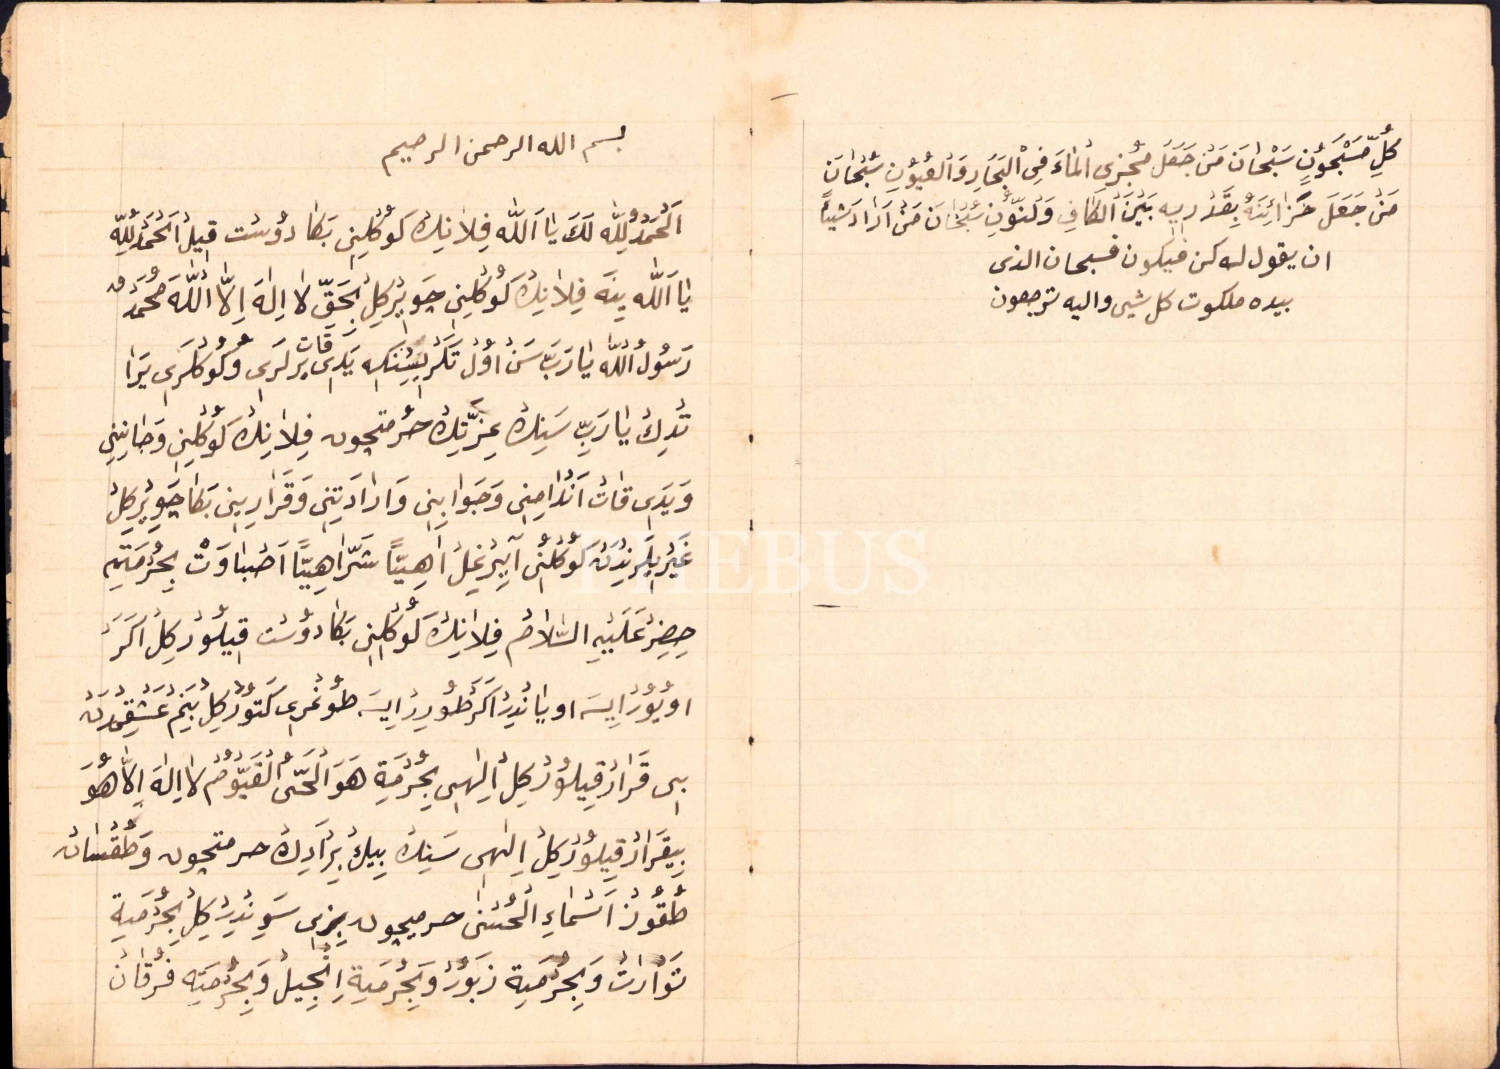 كُلٍّ مَسْبَحُونٍ سَبْحَانَ مَنْ جَعَلَ مُجْزِى الْمَاءَ فِى الْبَحَارِ وَالْعُيُوْنِ سُبْحَانَ
مَنْ جَعَلَ خَزَائِنَهُ بِقَدْرِيهِ بَيْنَ الْكَافِ وَلنُّوْنِ سُبْحَانَ مَنْ اَرَادَ شَيْئاً
ان يقول له كن فيكون فسبحان الذى
بيده ملكوت كل شيى واليه ترجعون
بسم الله الرحمن الرحيم
اَلْحَمْدُ لِلّٰهِ لَكَ يَا اَللّٰه فِلَانِكْ كُوكْلِنِى بَكَا دُوسْت قِيلْ اَلْحَمْدُ لِلّٰهِ
يَا اَللّٰه يِنَه فِلَانِكْ كُوكْلِنِى چَوِيْرْكِلْ بِحَقِّ لَا اِلٰهَ اِلَّا اللّٰهَ مُحَمَّدْ
رَسُولُ اللّٰه يَا رَبّ سَنْ اوُلْ تَكْرِيسِنْكِه يَدِى قَاتْ يِرْلَرِى وَكُوكْلَرِى يَرَا
تْدِكْ يَا رَبِّ سَنِكْ عِزَّتِكْ حُرْمتچون فِلَانِكْ كُوكْلِنِى وَجَانِينِى
وَيَدِى قَاتْ اَنْدَامِنِى وَجَوَابِنِى وَارَادَتِنِى وَقَرَارِينِى بَكَا چَوِيْرْكِلْ
غَيْرِيلَرِنْدَنْ كُوكْلُنْى آيِرْغِلْ اَهِيًّا شَرَّاهِيًّا اَصْبَاوَتْ بِحُرْمَتِه
حِضِرْ عَلَيْهِ السَّلَامُ فِلَانِكْ كُوكْلِنِى بَكَا دُوسْت قِيلُوْرْكِلْ اَكَرْ
اوُيُوْرْاِيسَه اويَانْدِرْ اَكَرْ طُورِرْاِيسَه طُوغْرِى كَتُوْرْكِلْ بَنِمْ عَشْقِمْدَنْ
بى قَرَارْ قِيلُوْرْكِلْ اِلٰهِى بِحُرْمَةِ هَوَ الْحَىُّ الْقَيُّوْمُ لَا اِلٰهَ اِلَّا هُوَ
بِيقَرَارْ قِيلُوْرْكِلْ اِلٰهِى سَنِكْ بِيكْ بِرْ اَدِكْ حرمتچون وَطُقْسَانْ
طُقُوزْ اَسْمَاءِ الْحُسْنٰى حرميچون بِزِى سَوِنْدِرْكِلْ بِحُرْمَةِ
تَوَارَاتْ وَبِحُرْمَةِ زَبَوُرْ وَبِحُرْمَةِ اِنْجِيلْ وَبِحُرْمَتِه فُرْقَانْ
PHEBUS